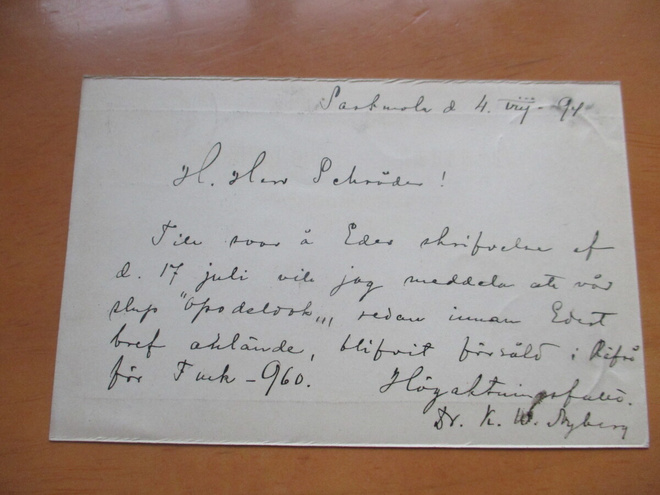 d 4. viij - 91
H. Herr Schröder!
Till svar å Eder skrifvelse af
d. 17 juli vill jag meddela att vår
slup "Opodeldok", redan innan Edert
bref anlände, blifvit försåld i
för Fmk - 960. Högaktningsfullt.
Dr. K. W. Nyberg